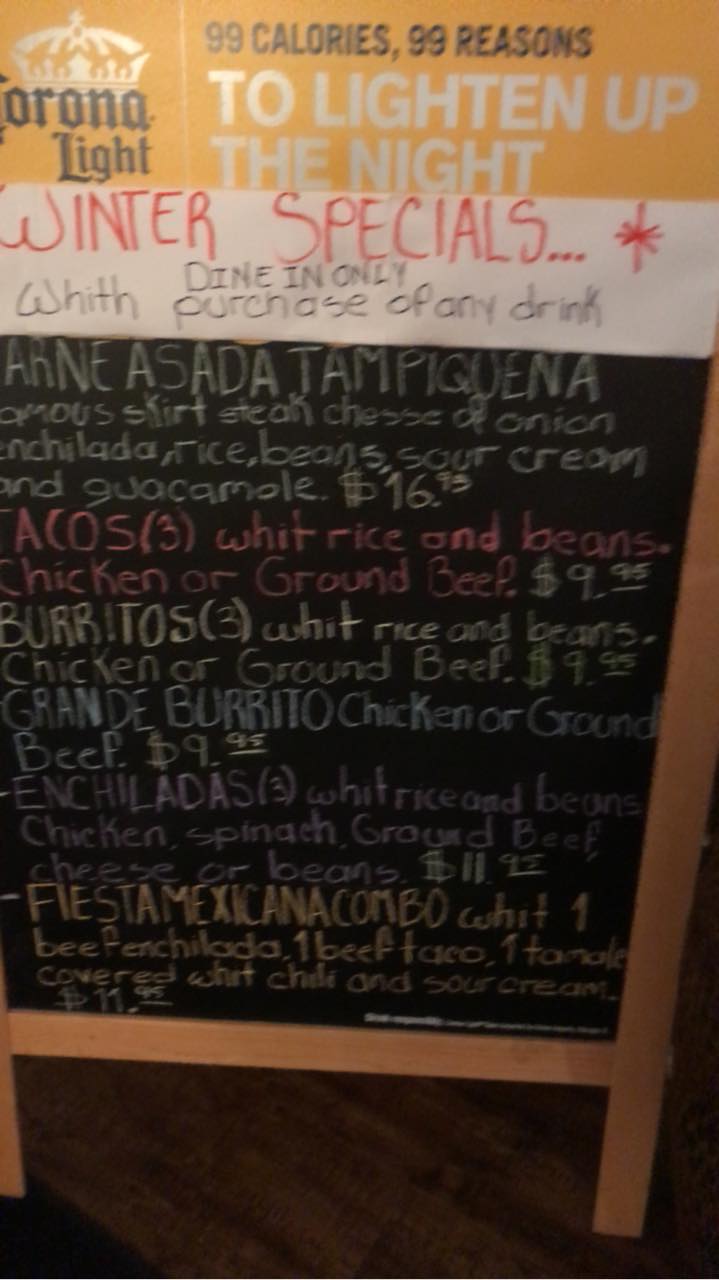 99 CALORIES, 99 REASONS
TO LIGHTEN UP
THE NIGHT
Corona
Light
WINTER SPECIALS... *
DINE IN ONLY
Whith purchase of any drink
ARNE ASADA TAMPIQUENA
amous skirt steak chesse of onion
enchilada, rice, beans, sour cream
and guacamole. $16.95
TACOS(3) whit rice and beans.
Chicken or Ground Beef. $9.95
BURRITOS(3) whit rice and beans.
Chicken or Ground Beef. $9.95
GRANDE BURRITO Chicken or Ground
Beef. $9.95
-ENCHILADAS(3) whit rice and beans
Chicken, spinach, Ground Beef,
cheese or beans. $11.95
- FIESTA MEXICANA COMBO whit 1
beef enchilada, 1 beef taco, 1 tamale
covered whit chili and sour cream.
$11.95